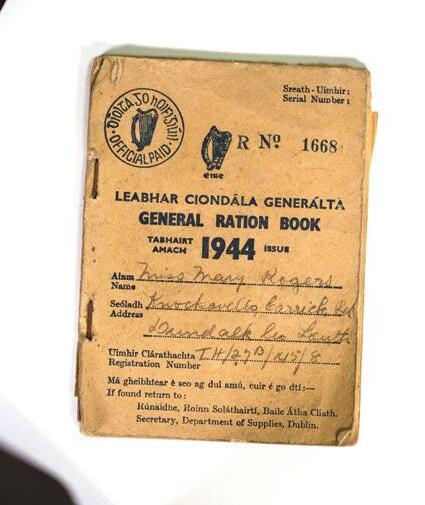 Sreath-Uimhir:
Serial Number:
díolta go hoifigiúil
OFFICIAL PAID
R Nº 1668
éire
LEABHAR CIONDÁLA GENERÁLTA
GENERAL RATION BOOK
TABHAIRT AMACH 1944 ISSUE
Ainm Name Miss Mary Rogers
Seóladh Address
Dundalk Co Louth
Uimhir Clárathachta
Registration Number
Má gheibhtear é seo ag dul amú, cuir é go dtí:—
If found return to:
Rúnaidhe, Roinn Soláthairtí, Baile Átha Cliath.
Secretary, Department of Supplies, Dublin.